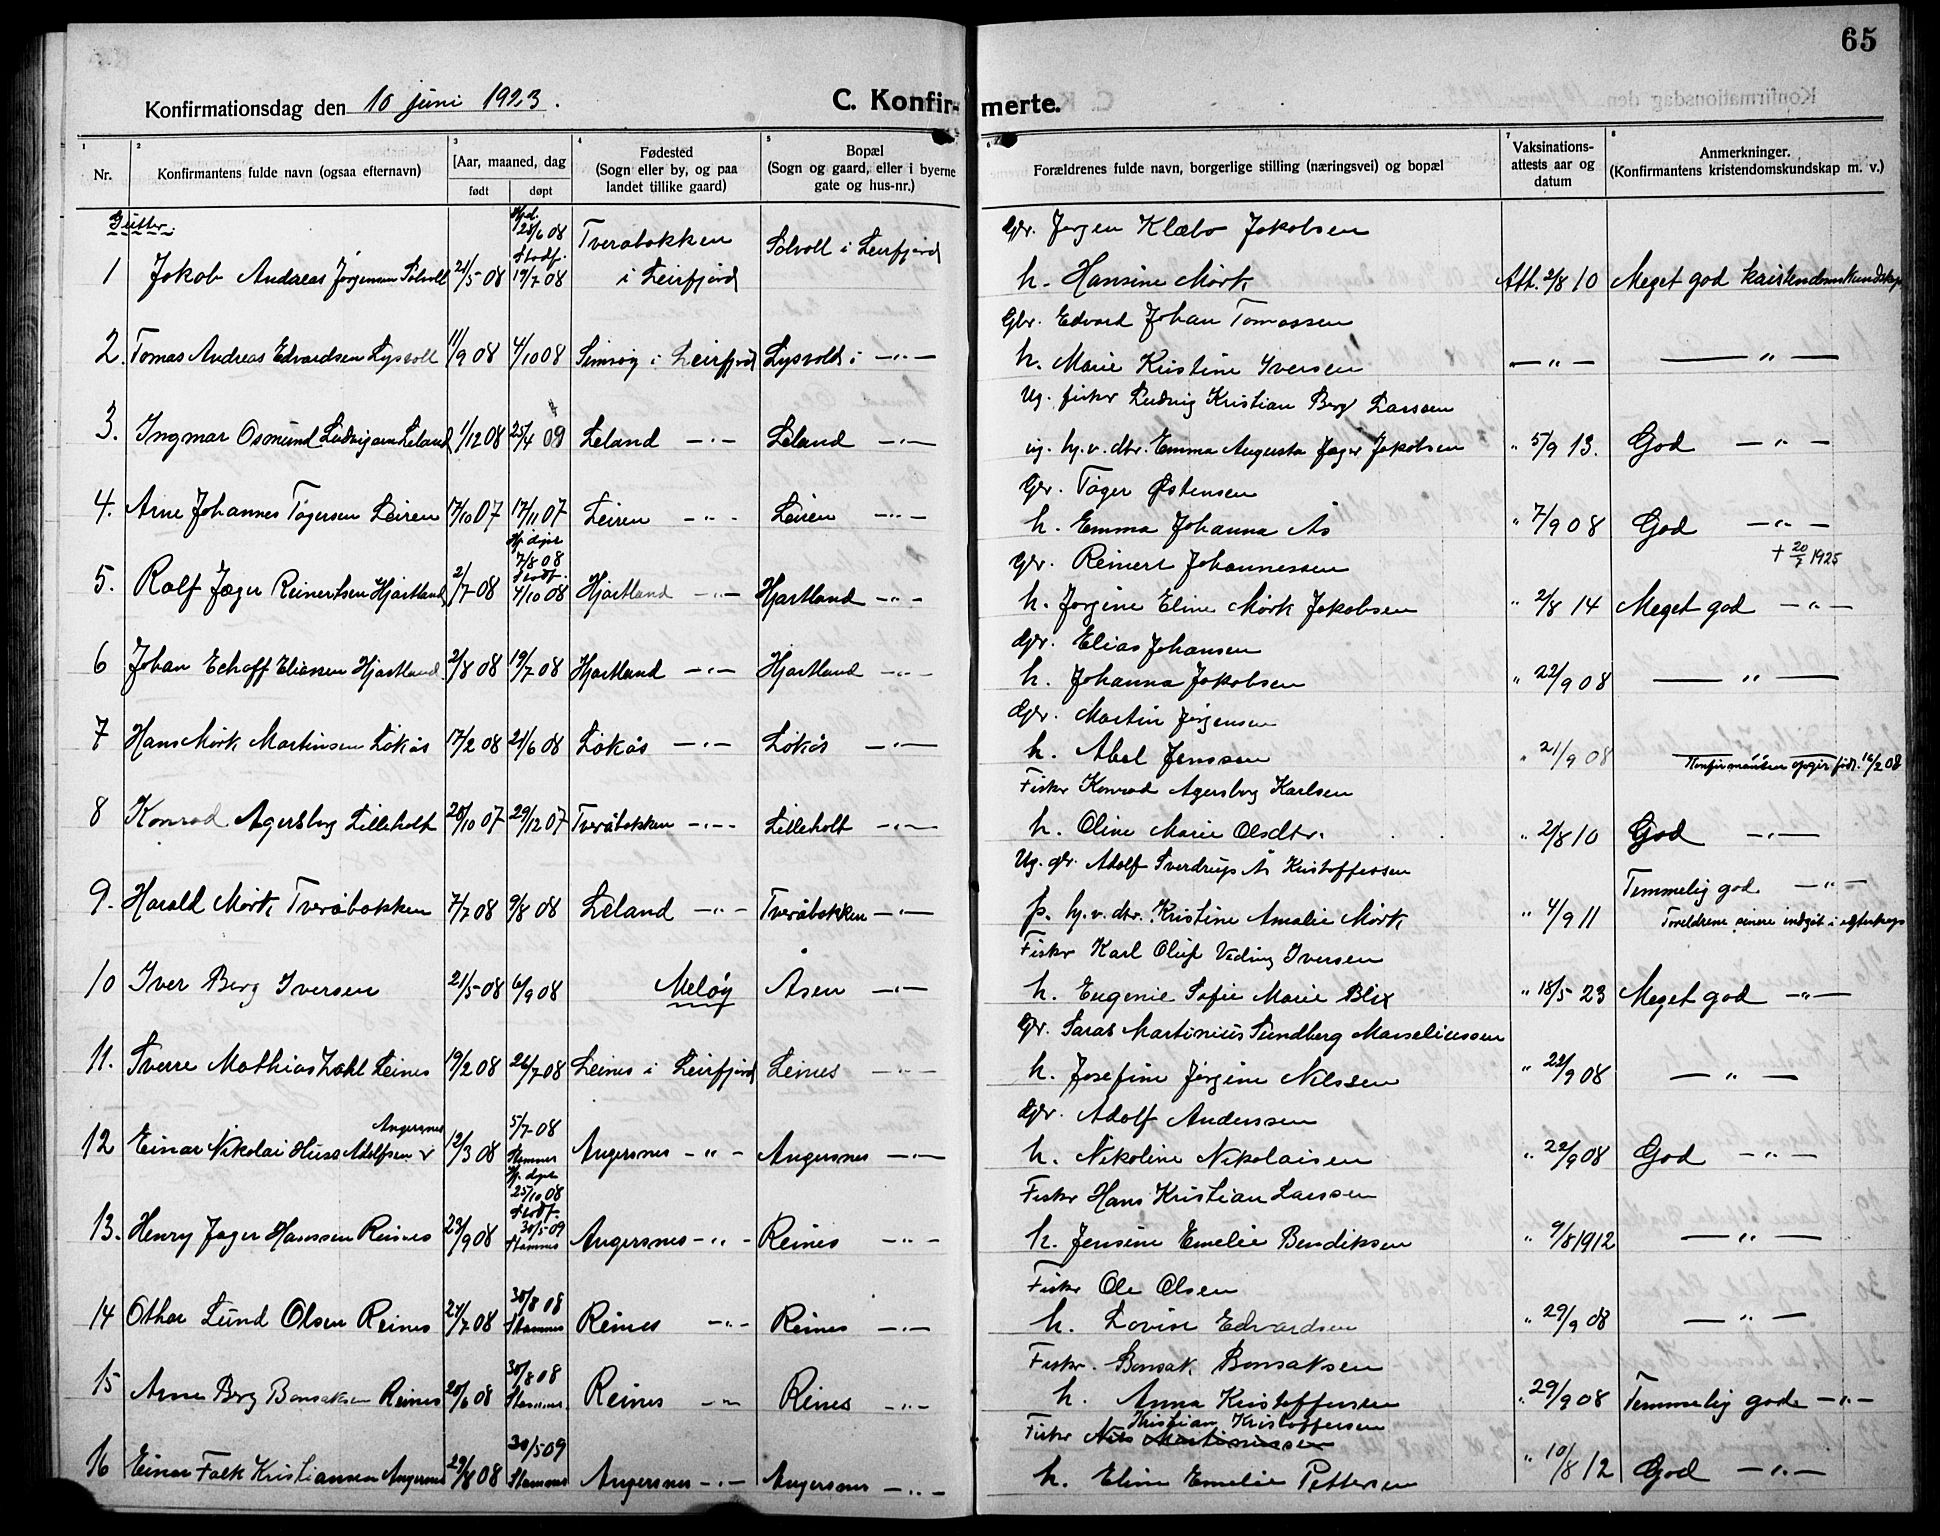 65
Konfirmationsdag den 10 juni 1923.
C. Konfirmerte.
1 2 3 4 5 6 7 8
Nr. Konfirmantens fulde navn (ogsaa efternavn) [Aar, maaned, dag født døpt Fødested (Sogn eller by, og paa landet tillike gaard) Bopæl (Sogn og gaard, eller i byerne gate og hus-nr.) Forældrenes fulde navn, borgerlige stilling (næringsvei) og bopæl Vaksinations-attests aar og datum Anmerkninger. (Konfirmantens kristendomskundskap m. v.)
Gutter.
Hjd. 28/6 08 Stadf. Gbr. Jørgen Klæbo Jakobsen
1 Jakob Andreas Jørgensen Solvoll 21/5-08 19/7-08 Tveråbakken i Leirfjord Solvoll i Leirfjord h. Hansine Mørk Att. 2/8 10 Meget god kristendomskundskap
Gbr. Edvard Johan Tomassen
2. Tomas Andreas Edvardsen Lysvoll 11/9 08 4/10 08 Simsøy i Leirfjord Lysvoll i — " — h. Marie Kristine Iversen — " — — " —
Ug. fisker Ludvig Kristian Berg Larssen
3. Ingmar Osmund Ludvigsen Leland 1/12 08 25/4 09 Leland — " — Leland — " — ug. hj.v. dtr. Emma Augusta Jæger Jakobsen " 5/9 13. God — " —
Gbr. Tøger Østensen
4. Arne Johannes Tøgersen Leiren 17/10 07 17/11 07 Leiren — " — Leiren — " — h. Emma Johanna Ås " 7/9 08 God — " —
Hj. døpt 7/8 08 Stadf. Gbr. Reinert Johannessen + 20/7 1925
5. Ralf Jæger Reinertsen Hjartland 2/7-08 4/10 08 Hjartland — " — Hjartland — " — h. Jørgine Eline Mørk Jakobsen " 2/8 14 Meget god — " —
Gbr. Elias Johansen
6 Johan Echoff Eliassen Hjartland 2/8 08 19/7 08 Hjartland — " — Hjartland — " — h. Johanna Jakobsen " 22/9 08 — " —
Gbr. Martin Jørgensen
7 Hans Mørk Martinsen Løkås 17/2 08 21/6 08 Løkås — " — Løkås — " — h. Abel Jenssen " 21/9 08 — " — Konfirmanten opgir født 16/2 08
Fisker Konrad Agersborg Karlsen
8 Konrad Agersborg Lilleholt 28/10 07 29/12 07 Tveråbakken — " — Lilleholt — " — h. Oline Marie Olsdtr. " 2/8 10 God — " —
Ug. gbr. Adolf Sverdrup Ås Kristoffersen
9. Harald Mørk Tveråbakken 7/7 08 9/8 08 Leland — " — Tveråbakken — " — p. hj.v. dtr. Kristine Amalie Mørk " 4/9 11 Temmelig god — " —
Foreldrene senere indgåt i ekteskap
Fisker Karl Oluf Iversen
10 Iver Berg Iversen 21/5-08 6/9 08 Meløy Åsen — " — h. Eugenie Sofie Marie Blix " 18/5 23 Meget god — " —
Gbr. Martinius Sundberg Marseliussen
11. Sverre Mathias Zahl Leines 19/2 08 26/7-08 Leines i Leirfjord Leines — " — h. Josefine Jørgine Nilssen " 22/9 08 — " —
Angersnes 5/7-08 Gbr. Adolf Anderssen
12 Einar Nikolai Huss Adolfsen 12/3 08 Stamnes Angersnes — " — Angersnes — " — h. Nikoline Nikolaisen " 22/9 08 God — " —
Hj. døpt 25/10 08 Stadf. Fisker Hans Kristian Larssen
13. Henry Jæger Hanssen Reines 23/9 08 30/5-09 Stamnes Angersnes — " — Reines — " — h. Jensine Emelie Bendiksen " 9/8 1912 — " —
30/8 08 Fisker Ole Olsen
14 Othar Lund Olsen Reines 27/7 08 Stamnes Reines — " — Reines — " — h. Lovise Edvardsen " 29/9 08 — " —
30/8 08 Fisker Bonsak Bonsaksen
15 Arne Berg Bonsaksen Reines 20/6 08 Stamnes Reines — " — Reines — " — h. Anna Kristoffersen " 29/9 08 Temmelig god — " —
30/5 09 Fisker Nils Martinussen Kristian Kristoffersen
16 Einar Falk Kristiansen Angersnes 29/8 08 Stamnes Angersnes — " — Angersnes — " — h. Eline Emelie Pettersen " 10/8 12 God — " —